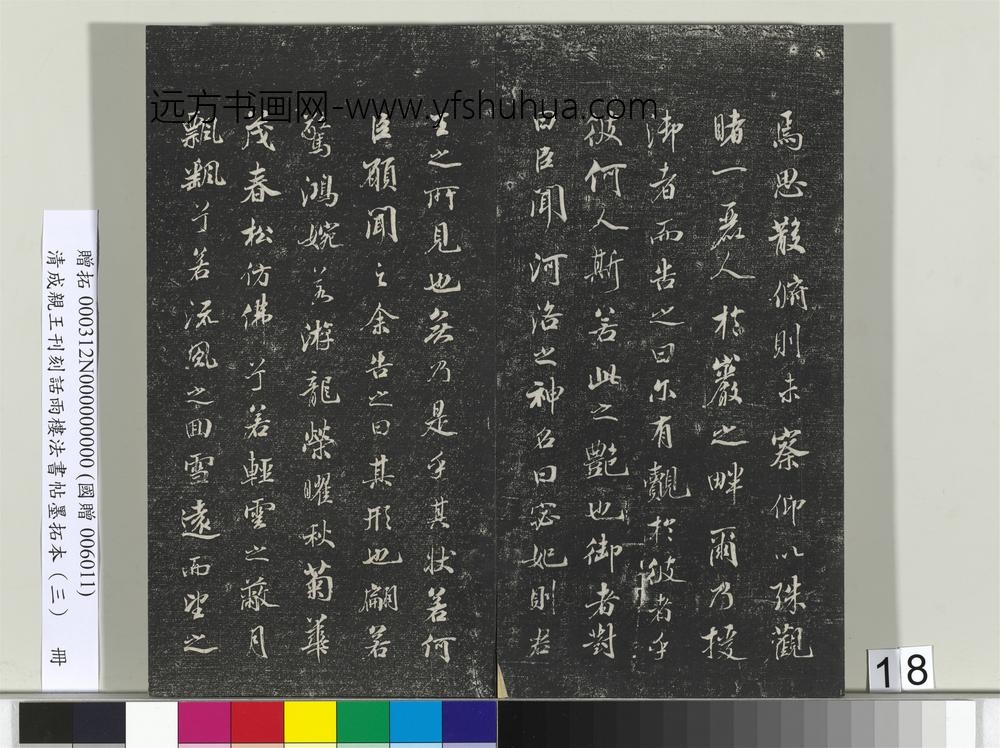 焉思散俯則未察仰以殊觀
睹一麗人於巖之畔爾乃援
御者而告之曰尔有覿於彼者乎
彼何人斯若此之艷也御者對
曰臣聞河洛之神名曰宓妃則君
王之所見也無乃是乎其狀若何
臣願聞之余告之曰其形也翩若
驚鴻婉若游龍榮曜秋菊華
茂春松仿佛兮若輕雲之蔽月
飄飄兮若流風之回雪遠而望之
远方书画网-www.yfshuhua.com
贈拓 000312N000000000(國贈 006011)
清成親王刊刻話雨樓法書帖墨拓本(三) 冊
18